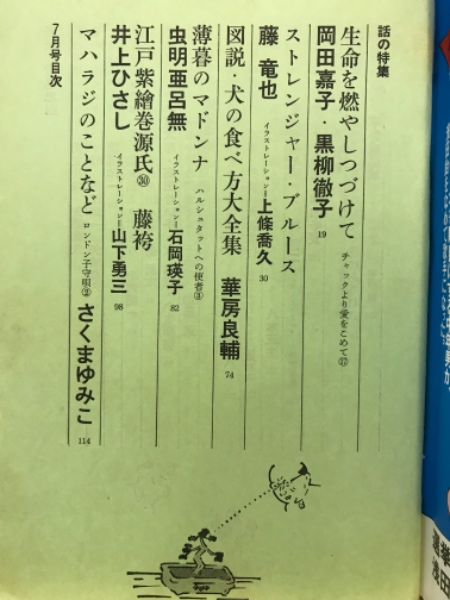 話の特集
生命を燃やしつづけて チャックより愛をこめて⑰
岡田嘉子・黒柳徹子 19
ストレンジャー・ブルース
藤竜也 イラストレーション＝上條喬久 30
図説・犬の食べ方大全集 華房良輔 74
薄暮のマドンナ ハルシュタットへの使者③
虫明亜呂無 イラストレーション＝石岡瑛子 82
江戸紫繪巻源氏㉚ 藤袴
井上ひさし イラストレーション＝山下勇三 98
マハラジのことなど ロンドン子守唄② さくまゆみこ 114
7月号目次